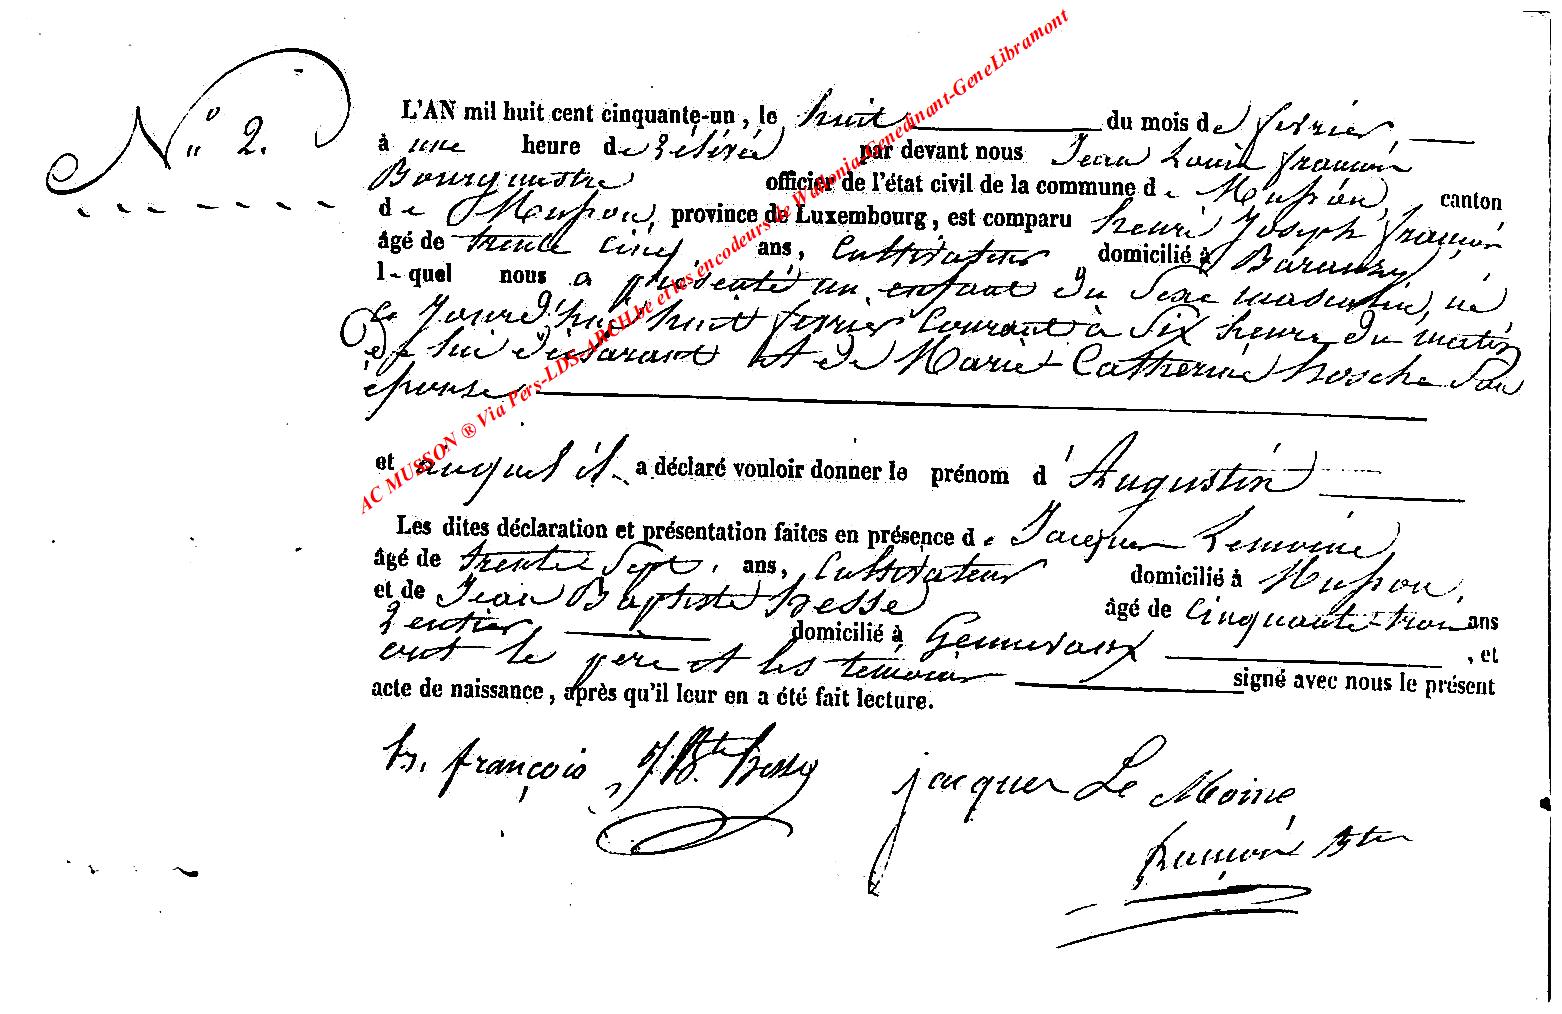 N° 2.
L'AN mil huit cent cinquante-un, le huit du mois de février
à une heure de rélevée par devant nous Jean Louis françois
Bourgmestre officier de l'état civil de la commune de Musson, canton
de Musson, province de Luxembourg, est comparu henri Joseph françois
âgé de trente cinq ans, Cultivateur domicilié à Baranzy,
lequel nous a présenté un enfant du sexe masculin, né
Ce Jourd'hui huit fevrier Courant à Six heure du matin
de lui déclarant et de Marie Catherine hosche Son
épouse
et auquel il a déclaré vouloir donner le prénom d'Augustin
Les dites déclaration et présentation faites en présence de Jacques Lemoine
âgé de trente Sept ans, Cultivateur domicilié à Musson,
et de Jean Baptiste hesse âgé de Cinquante-trois ans
Rentier domicilié à Gennevaux, et
ont le père et les temoins signé avec nous le présent
acte de naissance, après qu'il leur en a été fait lecture.
h. françois JBte hesse jacques Le Moine
françois
AC MUSSON ® Via Pers-LDS-ARCH.be et les encodeurs de Wallonia-Genedinant-GeneLibramont